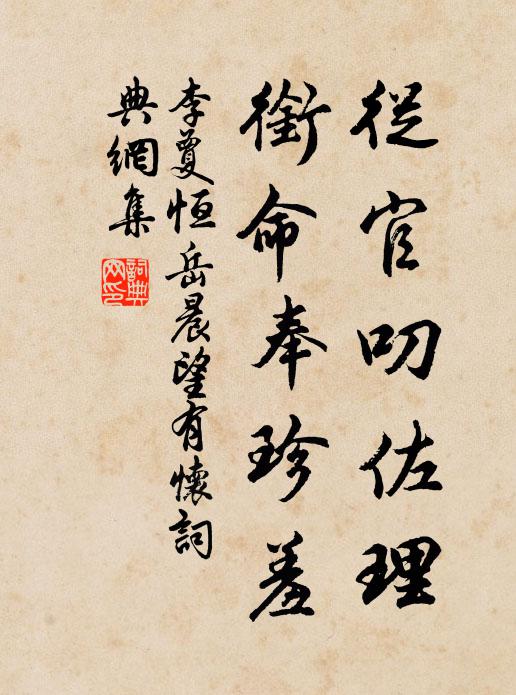 從官叨佐理
銜命奉珍羞
李夐恒岳晨望有懷詞
典網集
詞典
网印